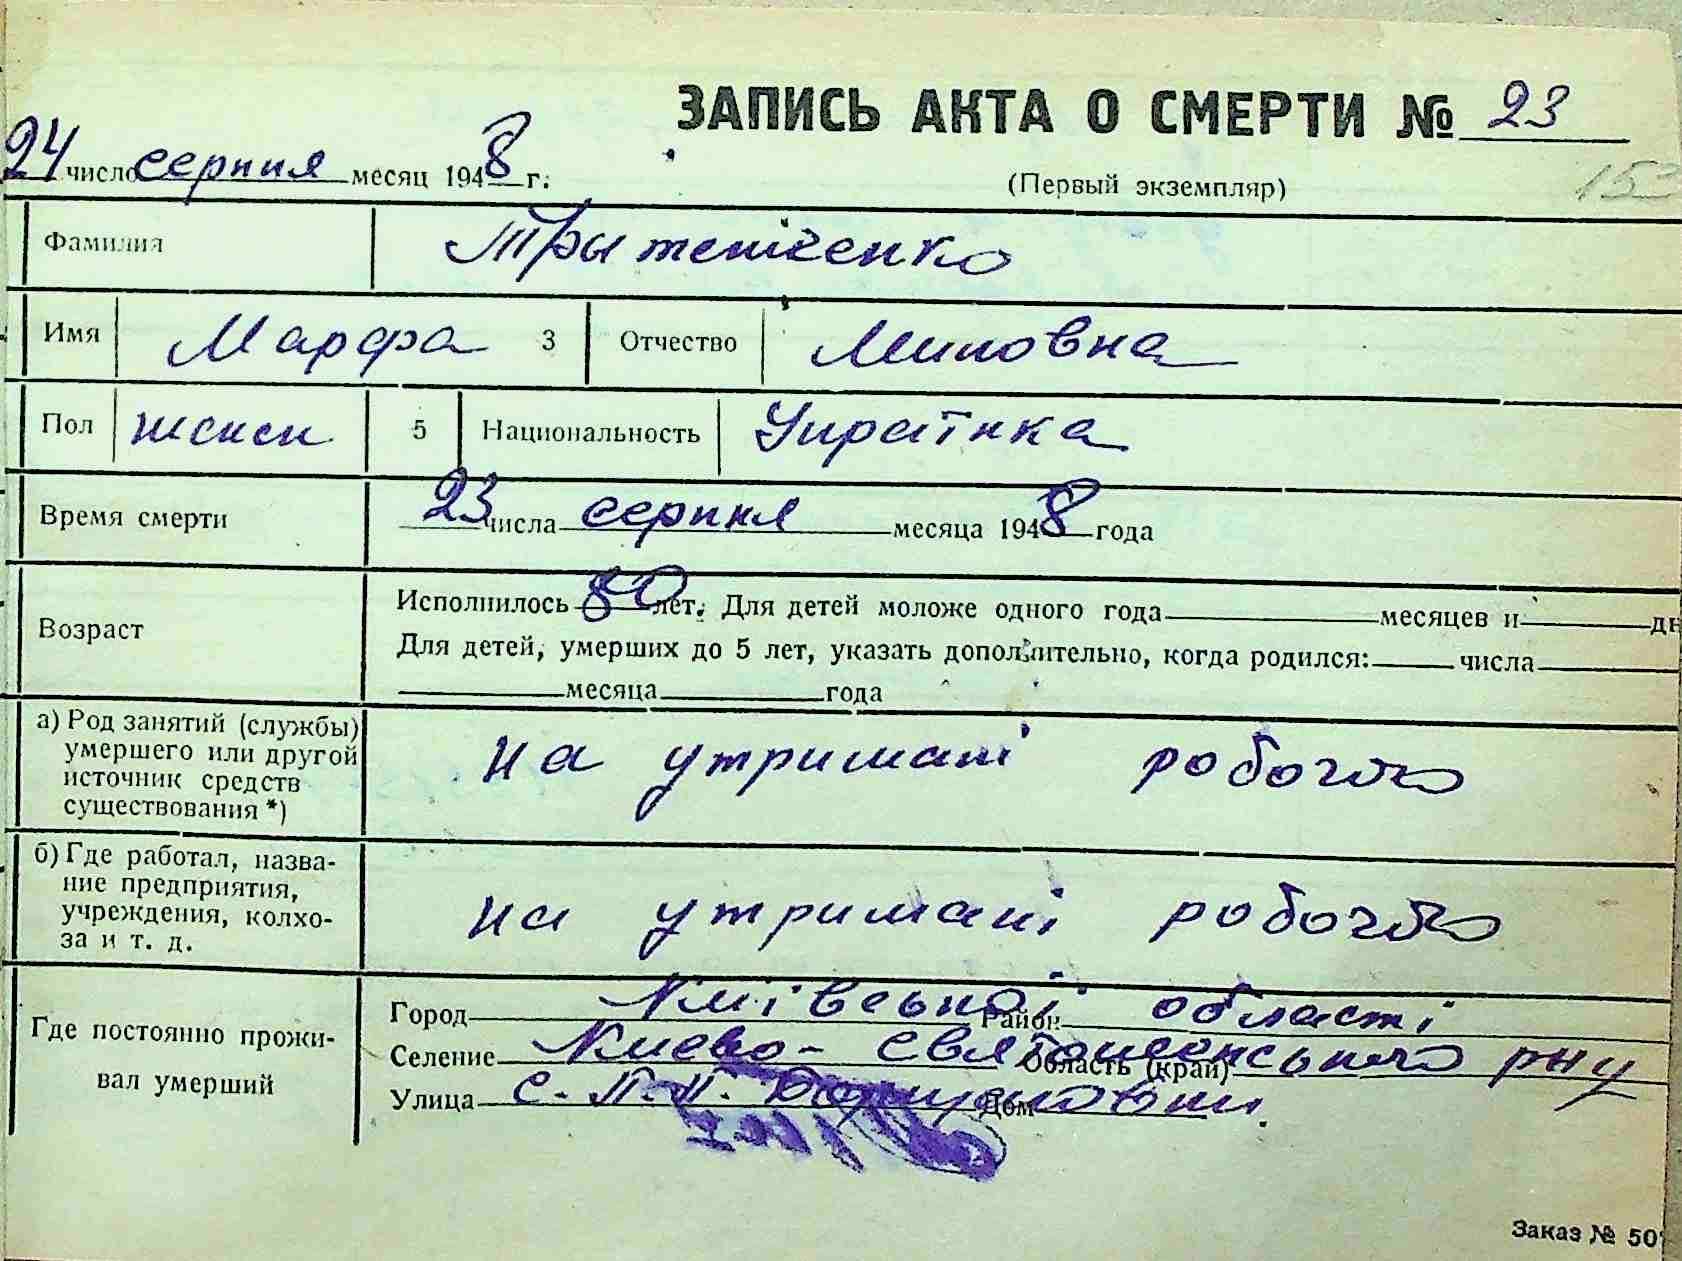 ЗАПИСЬ АКТА О СМЕРТИ № 23
24 число серпня месяц 1948 г.
(Первый экземпляр)
153
Фамилия
Имя Марфа 3 Отчество Миновна
Пол женск 5 Национальность Украінка
Время смерти 23 числа серпня месяца 1948 года
Возраст
Исполнилось 80 лет. Для детей моложе одного года месяцев и дн
Для детей, умерших до 5 лет, указать дополнительно, когда родился: числа
месяца года
а) Род занятий (службы)
умершего или другой
источник средств
существования *)
на утримані робочго
б) Где работал, назва-
ние предприятия,
учреждения, колхо-
за и т. д.
на утримані робочго
Где постоянно прожи-
вал умерший
Город Київської Район області
Селение Києво-Святошенського Область (край) рну
Улица с. П.П. Борщаговки Дом
Заказ № 50